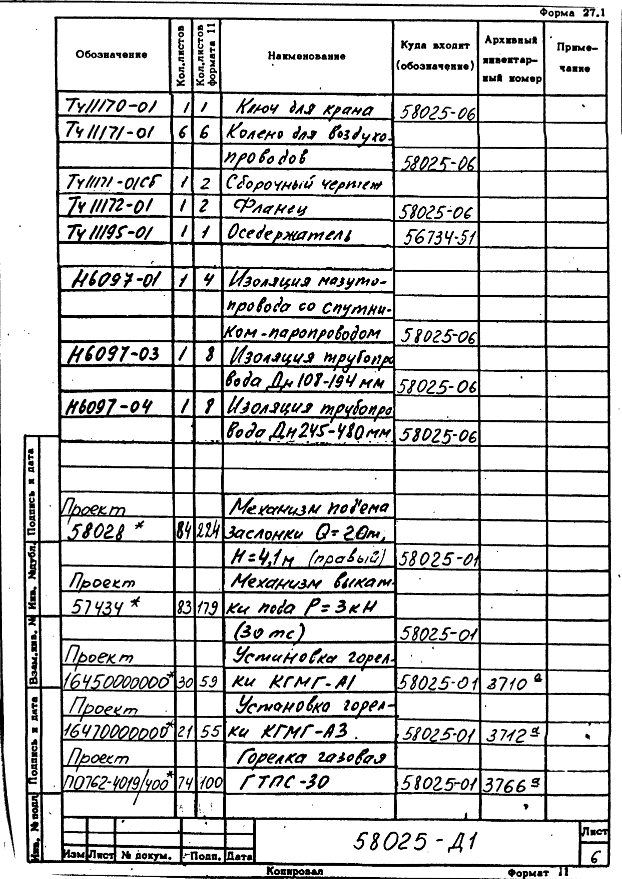 Форма 27.1
Обозначение Кол.листов Кол.листов формата 11 Наименование Куда входит (обозначение) Архивный инвентарный номер Примечание
Ту11170-01 1 1 Ключ для крана 58025-06
Ту11171-01 6 6 Колено для воздухо-
проводов 58025-06
Ту11171-01СБ 1 2 Сборочный чертеж
Ту11172-01 1 2 Фланец 58025-06
Ту11195-01 1 1 Оседержатель 56734-51
Н6097-01 1 4 Изоляция мазуто-
провода со спутни-
ком-паропроводом 58025-06
Н6097-03 1 8 Изоляция трубопро
вода Дн 108-194 мм 58025-06
Н6097-04 1 8 Изоляция трубопро
вода Дн 245-480 мм 58025-06
Проект Механизм подъема
58028* 84 224 заслонки Q=20т,
Н=4,1м (правый) 58025-01
Проект Механизм выкат-
57434* 83 179 ки пода Р=3кН
(30 тс) 58025-01
Проект Установка горел-
16450000000* 30 59 ки КГМГ-А1 58025-01 3710а
Проект Установка горел-
16470000000* 21 55 ки КГМГ-А3. 58025-01 3712а
Проект Горелка газовая
П0762-4019/400* 74 100 ГТПС-30 58025-01 3766а
Инв. № подл. Подпись и дата Взам.инв. № Инв. №дубл. Подпись и дата
58025-Д1
Лист
6
Изм Лист № докум. Подп. Дата
Копировал Формат 11